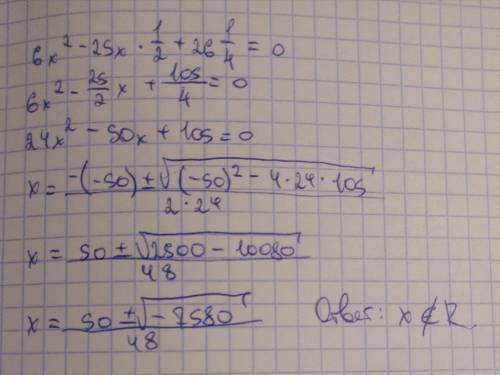 6x² - 25x · 1/2 + 26 1/4 = 0
6x² - 25/2 x + 105/4 = 0
24x² - 50x + 105 = 0
x = (-(-50) ± √((-50)² - 4·24·105)) / (2·24)
x = (50 ± √(2500 - 10080)) / 48
x = (50 ± √(-7580)) / 48 Ответ: x ∉ R